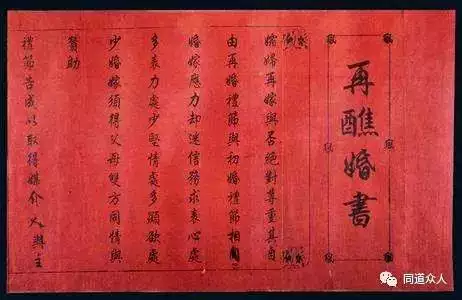 再醮婚書
孀婦再嫁與否絕對尊重其自
由再婚禮節與初婚禮節相同
婚嫁應力却迷信務求衷心處
多衷力處少堅情處多顯欲處
少婚嫁須得父母雙方同情與
贊助
禮節告成以取得媒介人主
同道众人